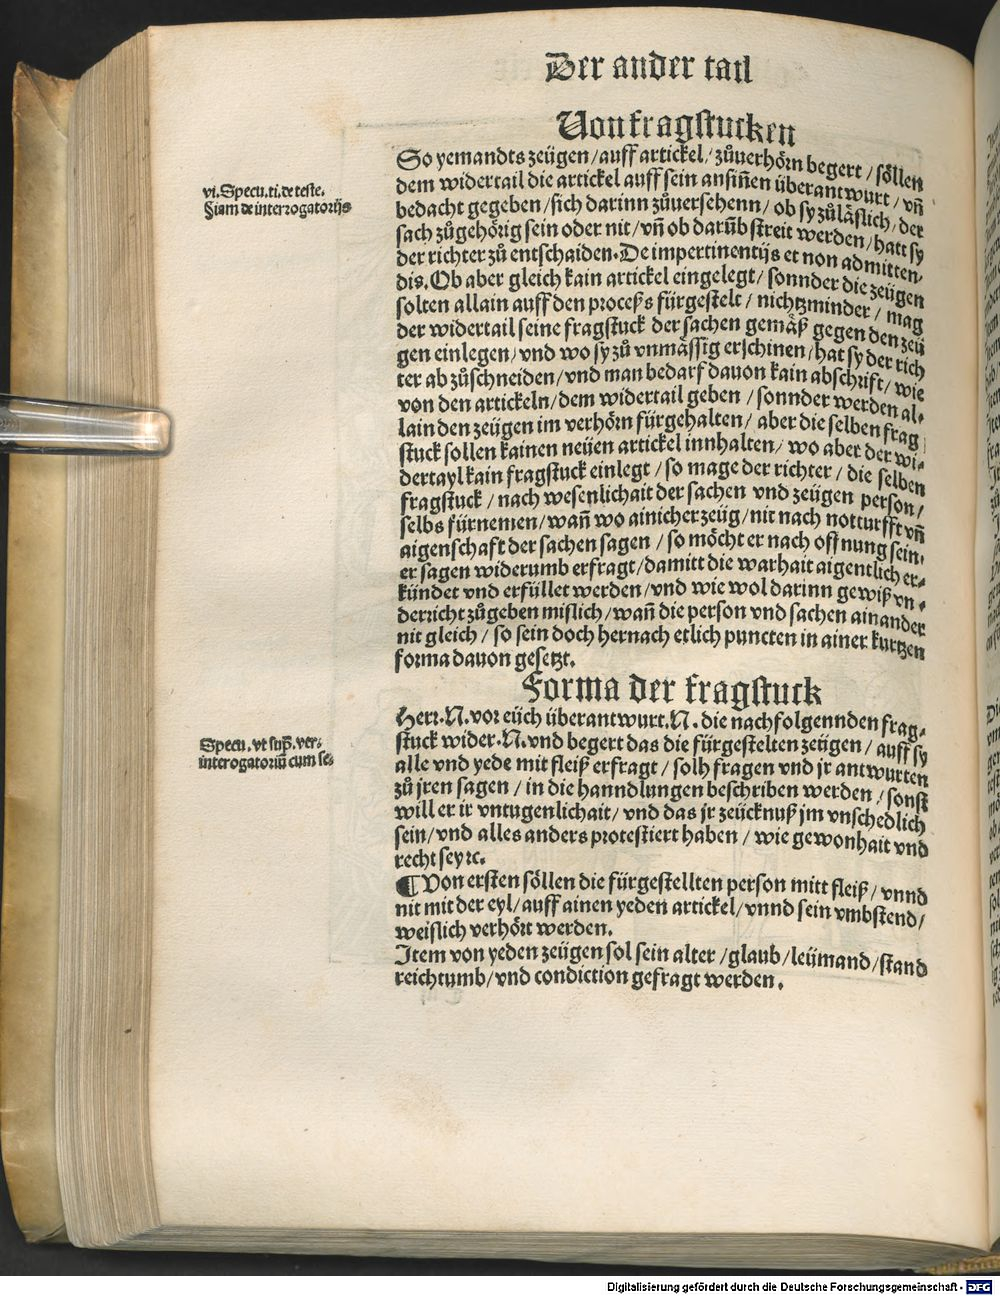 Der ander tail
Von fragstucken
So yemandts zeügen / auff artickel / zůuerhörn begert / söllen
dem widertail die artickel auff sein ansiñen überantwurt / vñ
bedacht gegeben / sich darinn zůuersehenn / ob sy zůläslich / der
sach zůgehörig sein oder nit / vñ ob darüb streit werden / hatt sy
der richter zů entschaiden. De impertinentijs et non admitten,
dis. Ob aber gleich kain artickel eingelegt / sonnder die zeügen
solten allain auff den proceſs fürgestelt / nichtzminder / mag
der widertail seine fragstuck der sachen gemäß gegen den zeü
gen einlegen / vnd wo sy zů vnmässig erschinen / hat sy der rich
ter ab zůschneiden / vnd man bedarf dauon kain abschrift / wie
von den artickeln / dem widertail geben / sonnder werden al,
lain den zeügen im verhörn fürgehalten / aber die selben frag
stuck sollen kainen neüen artickel innhalten / wo aber der wi,
dertayl kain fragstuck einlegt / so mage der richter / die selben
fragstuck / nach wesenlichait der sachen vnd zeügen person /
selbs fürnemen / wañ wo ainicher zeüg / nit nach notturfft vñ
aigenschaft der sachen sagen / so möcht er nach offnung sein,
er sagen widerumb erfragt / damitt die warhait aigentlich er,
kündet vnd erfüllet werden / vnd wie wol darinn gewiß vn,
derricht zůgeben mislich / wañ die person vnd sachen ainander
nit gleich / so sein doch hernach etlich puncten in ainer kurtzen
forma dauon gesetzt.
vi. Specu. ti. de teste.
§iam de interrogatorijs
Forma der fragstuck
Herr. N. vor eüch überantwurt. N. die nachfolgennden frag,
stuck wider. N. vnd begert das die fürgestelten zeügen / auff sy
alle vnd yede mit fleiß erfragt / solh fragen vnd jr antwurten
zů jren sagen / in die hanndlungen beschriben werden / sonst
will er ir vntugenlichait / vnd das jr zeücknuß jm vnschedlich
sein / vnd alles anders protestiert haben / wie gewonhait vnd
recht sey rc.
Specu. vt sup̄. ver.
interrogatoriū cum se,
¶ Von ersten söllen die fürgestellten person mitt fleiß / vnnd
nit mit der eyl / auff ainen yeden artickel / vnnd sein vmbstend /
weislich verhört werden.
Item von yeden zeügen sol sein alter / glaub / leümand / stand
reichtumb / vnd condiction gefragt werden.
Digitalisierung gefördert durch die Deutsche Forschungsgemeinschaft - DFG